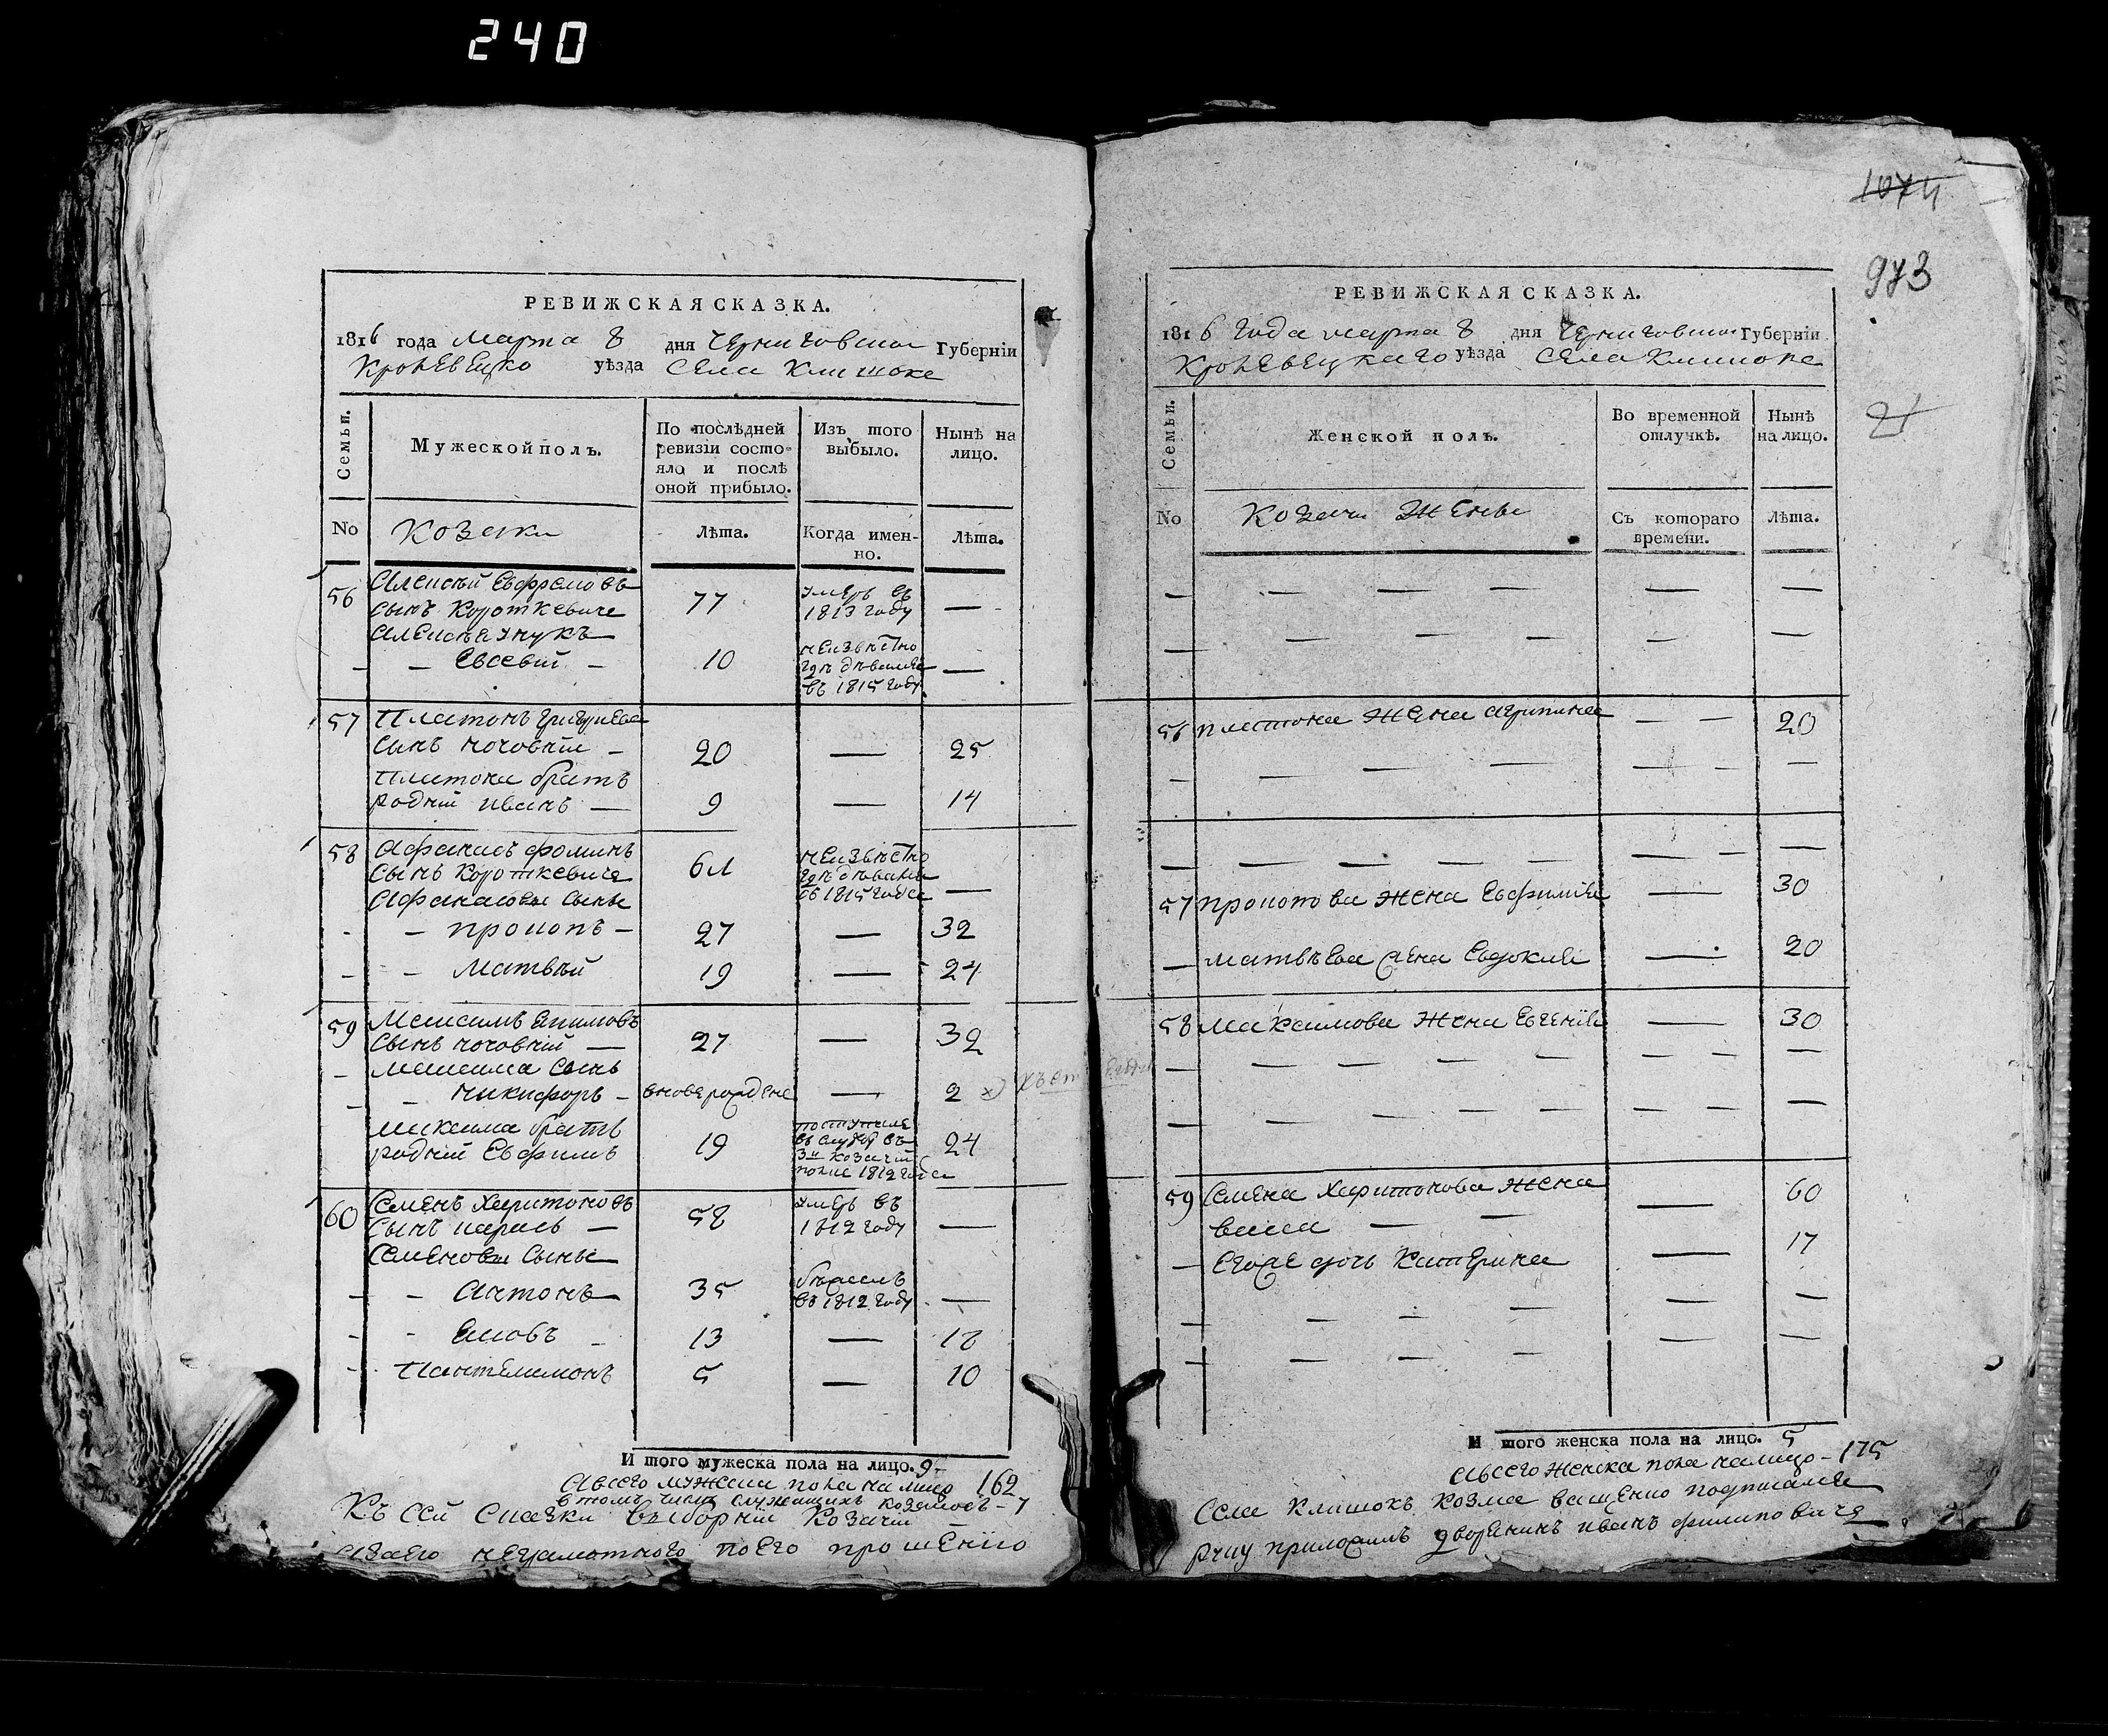 240
1074
973
21
РЕВИЖСКАЯ СКАЗКА.
1816 года Марта 8 дня Черниговской Губерніи
Кролевецко уѣзда Села Клишокъ
Семьи.
Мужеской полъ.
По послѣдней ревизіи состояло и послѣ оной прибыло.
Изъ того выбыло.
Нынѣ на лицо.
No
Козаки
Лѣта.
Когда именно.
Лѣта.
56 Алексѣй Евфремовъ
сынъ Короткевичъ 77 умеръ въ 1813 году —
Алексѣя унукъ
— Евсевій — 10 неизвѣстно гдѣ дѣвался въ 1815 году —
57 Платонъ Григориевъ
сынъ Ночовній — 20 — 25
Платона братъ
родній Иванъ — 9 — 14
58 Афанасъ Фоминъ
сынъ Короткевичъ 61 неизвѣстно гдѣ дѣвался съ 1815 года —
Афанасовы сыны
— Прокопъ — 27 — 32
— Матвѣй 19 — 24
59 Максимъ Якимовъ
сынъ Ночовній — 27 — 32
Максима сынъ
— Никифоръ — вновь рожденъ — 2
Максима братъ
родній Евфимъ 19 поступилъ въ службу въ 3й козачій полкъ 1812 года 24
60 Семенъ Харитоновъ
сынъ Карась — 58 умеръ въ 1812 году —
Семеновы сыны
— Антонъ 35 въ 1812 году —
— Яковъ — 13 — 18
— Пантелимонъ 5 — 10
И того мужеска пола на лицо. 9
А всего мужеска пола на лицо 162
в томъ числѣ служащихъ козаковъ — 7
Къ сей сказки выборній козачій
неграмотного по его прошенію
РЕВИЖСКАЯ СКАЗКА.
1816 года марта 8 дня Черниговской Губерніи
Кролевецкаго уѣзда Села Клишокъ
Семьи.
Женской полъ.
Во временной отлучкѣ.
Нынѣ на лицо.
No
Козачи Жены
Съ котораго времени.
Лѣта.
56 Платона жена Агрипина — — 20
57 Прокопова жена Евфимія — 30
— Матвѣева жена Евдокия — 20
58 Максимова жена Евгенія — 30
59 Семена Харитонова жена — 60
Васса — —
— Егоже дочь Катерина — 17
И того женска пола на лицо. 5
А всего женска пола на лицо — 175
Села Клишокъ Козма Ващенко подписался
руку приложилъ дворянинъ Иванъ Филиповичъ